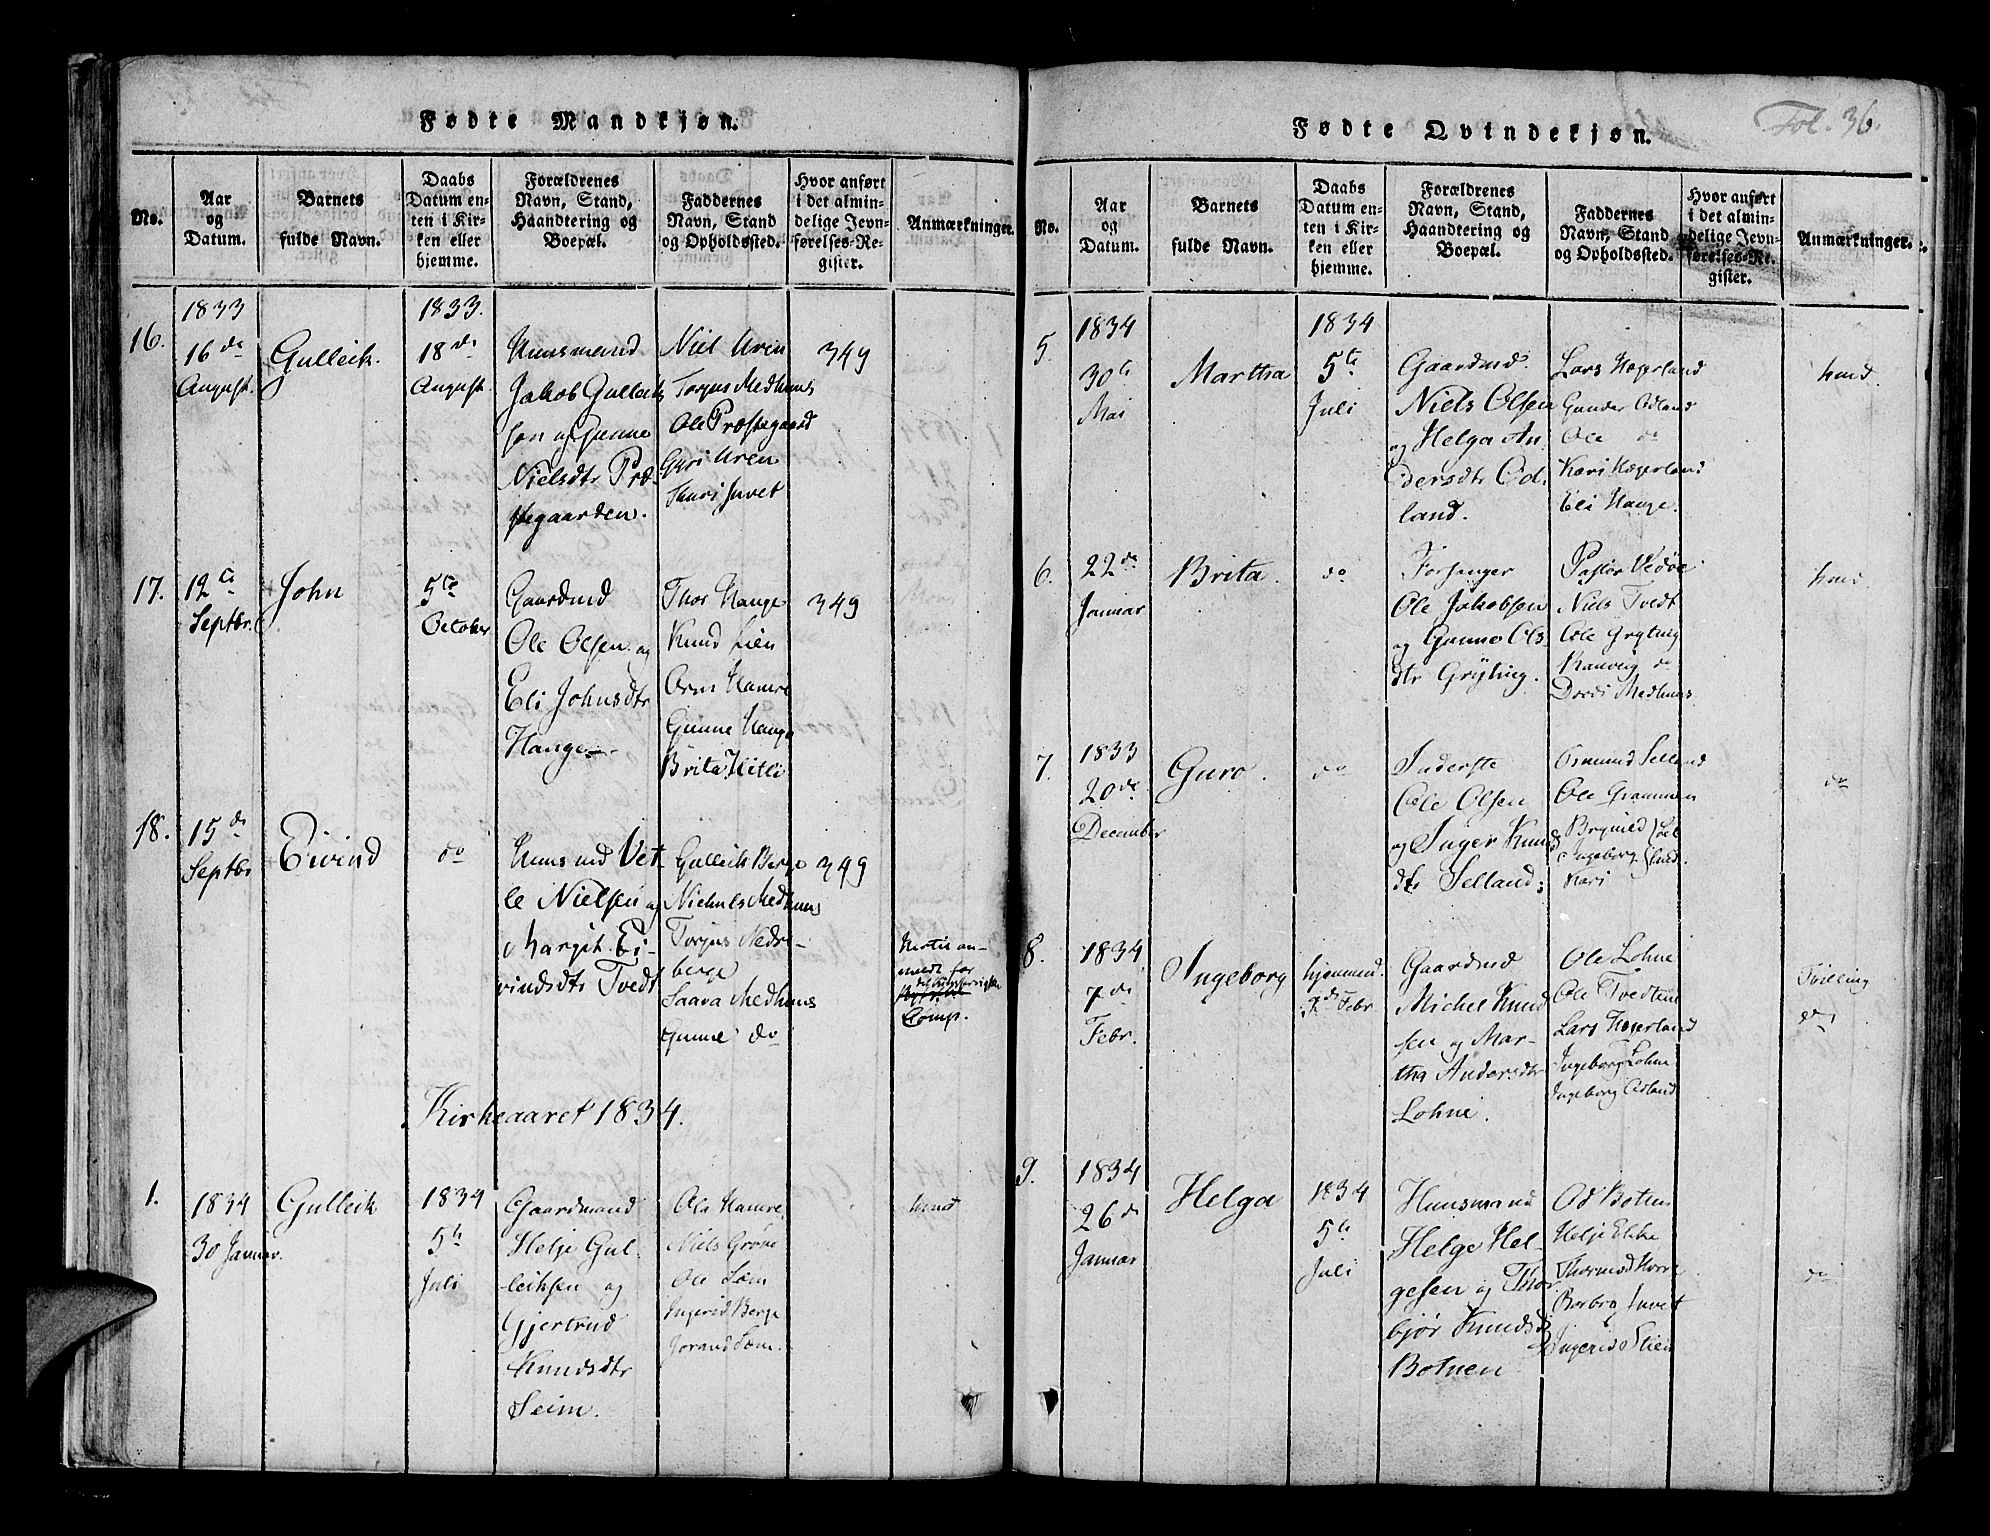 Fødte Mandkjøn.
No.
Aar
og
Datum.
Barnets
fulde Navn.
Daabs
Datum en-
ten i Kir-
ken eller
hjemme.
Forældrenes
Navn, Stand,
Haandtering og
Boepæl.
Faddernes
Navn, Stand
og Opholdssted.
Hvor anført
i det almin-
delige Jevn-
førelses-Re-
gister.
Anmærkninger.
16.
1833
16de
August.
Gulleik.
1833.
18de
August.
Huusmand
Jakob Gulleik
sen og Gunne
Nielsdtr Præ-
stegaarden.
Niel Uren
Torjus Medhuus
Ole Præstegaard
Guri Uren
Skuri Juvet
349
17.
12te
Septbr.
John
5te
October
Gaardmd
Ole Olsen og
Eli Johnsdtr
Hauge
Thor Hauge
Knud Lien
Orm Hamre
Gunne Hauge
Brita Hitli
349
18.
15de
Septbr
Eivind
do
Huusmd Vet-
le Nielsen og
Margit Ei-
vindsdtr Tvedt
Gulleik Berge
Nichuls Medhuus
Torjus Nedre-
berge
Saava Medhuus
Gunne do
349
an-
meldt for
Comp.
Kirkeaaret 1834.
1.
1834
30 Januar.
Gulleik
1834
5te
Juli
Gaardmand
Helje Gul-
leiksen og
Gjertrud
Knudsdtr
Seim.
Ole Hamre
Niels Grove
Ole Sæm
Ingerid Berge
Jorand Sæm.
Fødte Qvindekjøn.
Fol. 36.
No.
Aar
og
Datum.
Barnets
fulde Navn.
Daabs
Datum en-
ten i Kir-
ken eller
hjemme.
Forældrenes
Navn, Stand,
Haandtering og
Boepæl.
Faddernes
Navn, Stand
og Opholdssted.
Hvor anført
i det almin-
delige Jevn-
førelses-Re-
gister.
Anmærkninger.
5.
1834
30te
Mai
Martha
1834
5te
Juli
Gaardmd.
Niels Olsen
og Helga An
dersdtr Od-
land.
Lars Hægerland
Gunder Odland
Ole do
Kari Hægerland
Eli Hauge.
6.
22de
Januar
Brita.
do
Forsanger
Ole Jakobsen
og Gunne Ols-
dtr Gryting.
Pastor Vedøe
Niels Tvedt
Ole Gryting
Ranveig do
Dordi Medhuus
7.
1833
20de
December
Guro.
do
Inderste
Ole Olsen
og Inger Knuds
dtr Selland.
Osmund Selland
Ole Grammen
Brynild
Ingeborg
Kari
Sel
land.
do
8.
1834
7de
Febr.
Ingeborg
hjemmed.
7de Febr
Gaardmd
Michel Knud
sen og Mar-
tha Andersdtr
Lohne.
Ole Lohne
Ole Tvedtene
Lars Hægerland
Ingeborg Lohne
Ingeborg Odland
Tvilling
do
9.
1834
26de
Januar
Helga
1834
5te
Juli
Huusmand
Helge Hel-
gesen og Thor
bjør Knudsd
Botnen
Od Botnen
Helje Ekke
Thormod Horre
Barbro Juvet
Ingerid Stien
do